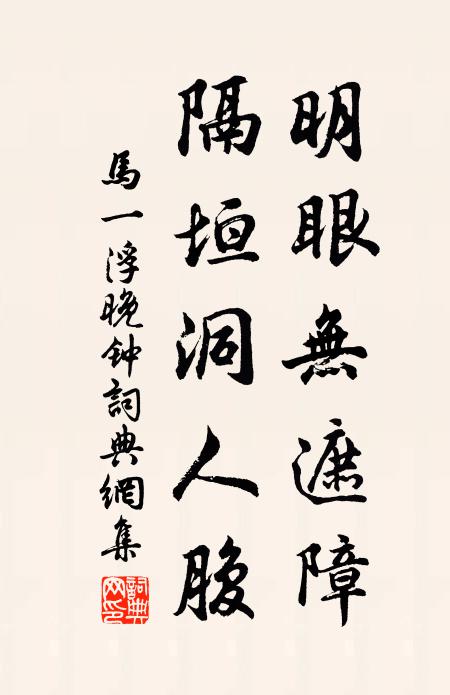 明眼無遮障
隔垣洞人腹
馬一浮晚钟詞典網集
詞典網印